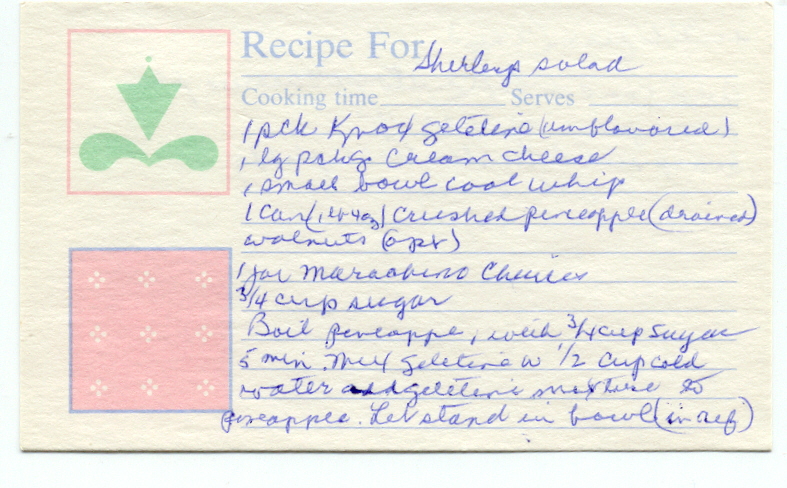 Recipe For Sherleys salad
Cooking time Serves
1 pck Knox geletine (unflavoured)
1 lg pckg. Cream cheese
1 small bowl cool whip
1 can (1 lb 4 oz) crushed pineapple (drained)
walnuts (opt)
1 jar Marachino Cherries
3/4 cup sugar
Boil pineappe, with 3/4 cup sugar
5 min. Mix geletine w 1/2 cup cold
water add geletine mixture to
pineapple. Let stand in bowl (in ref)